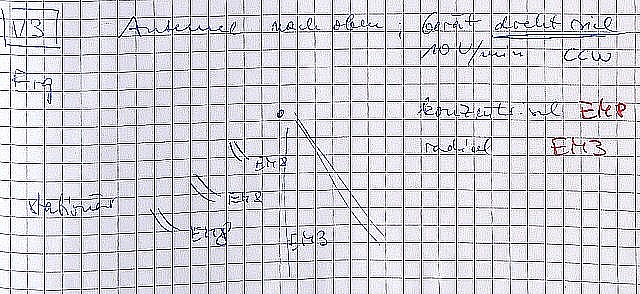 V3 Antenne nach oben, Gerät dreht sich
10 U/min CCW
Erg
konzentr. EM8
radial EM3
EM8
EM8
stationär
EM8
EM3